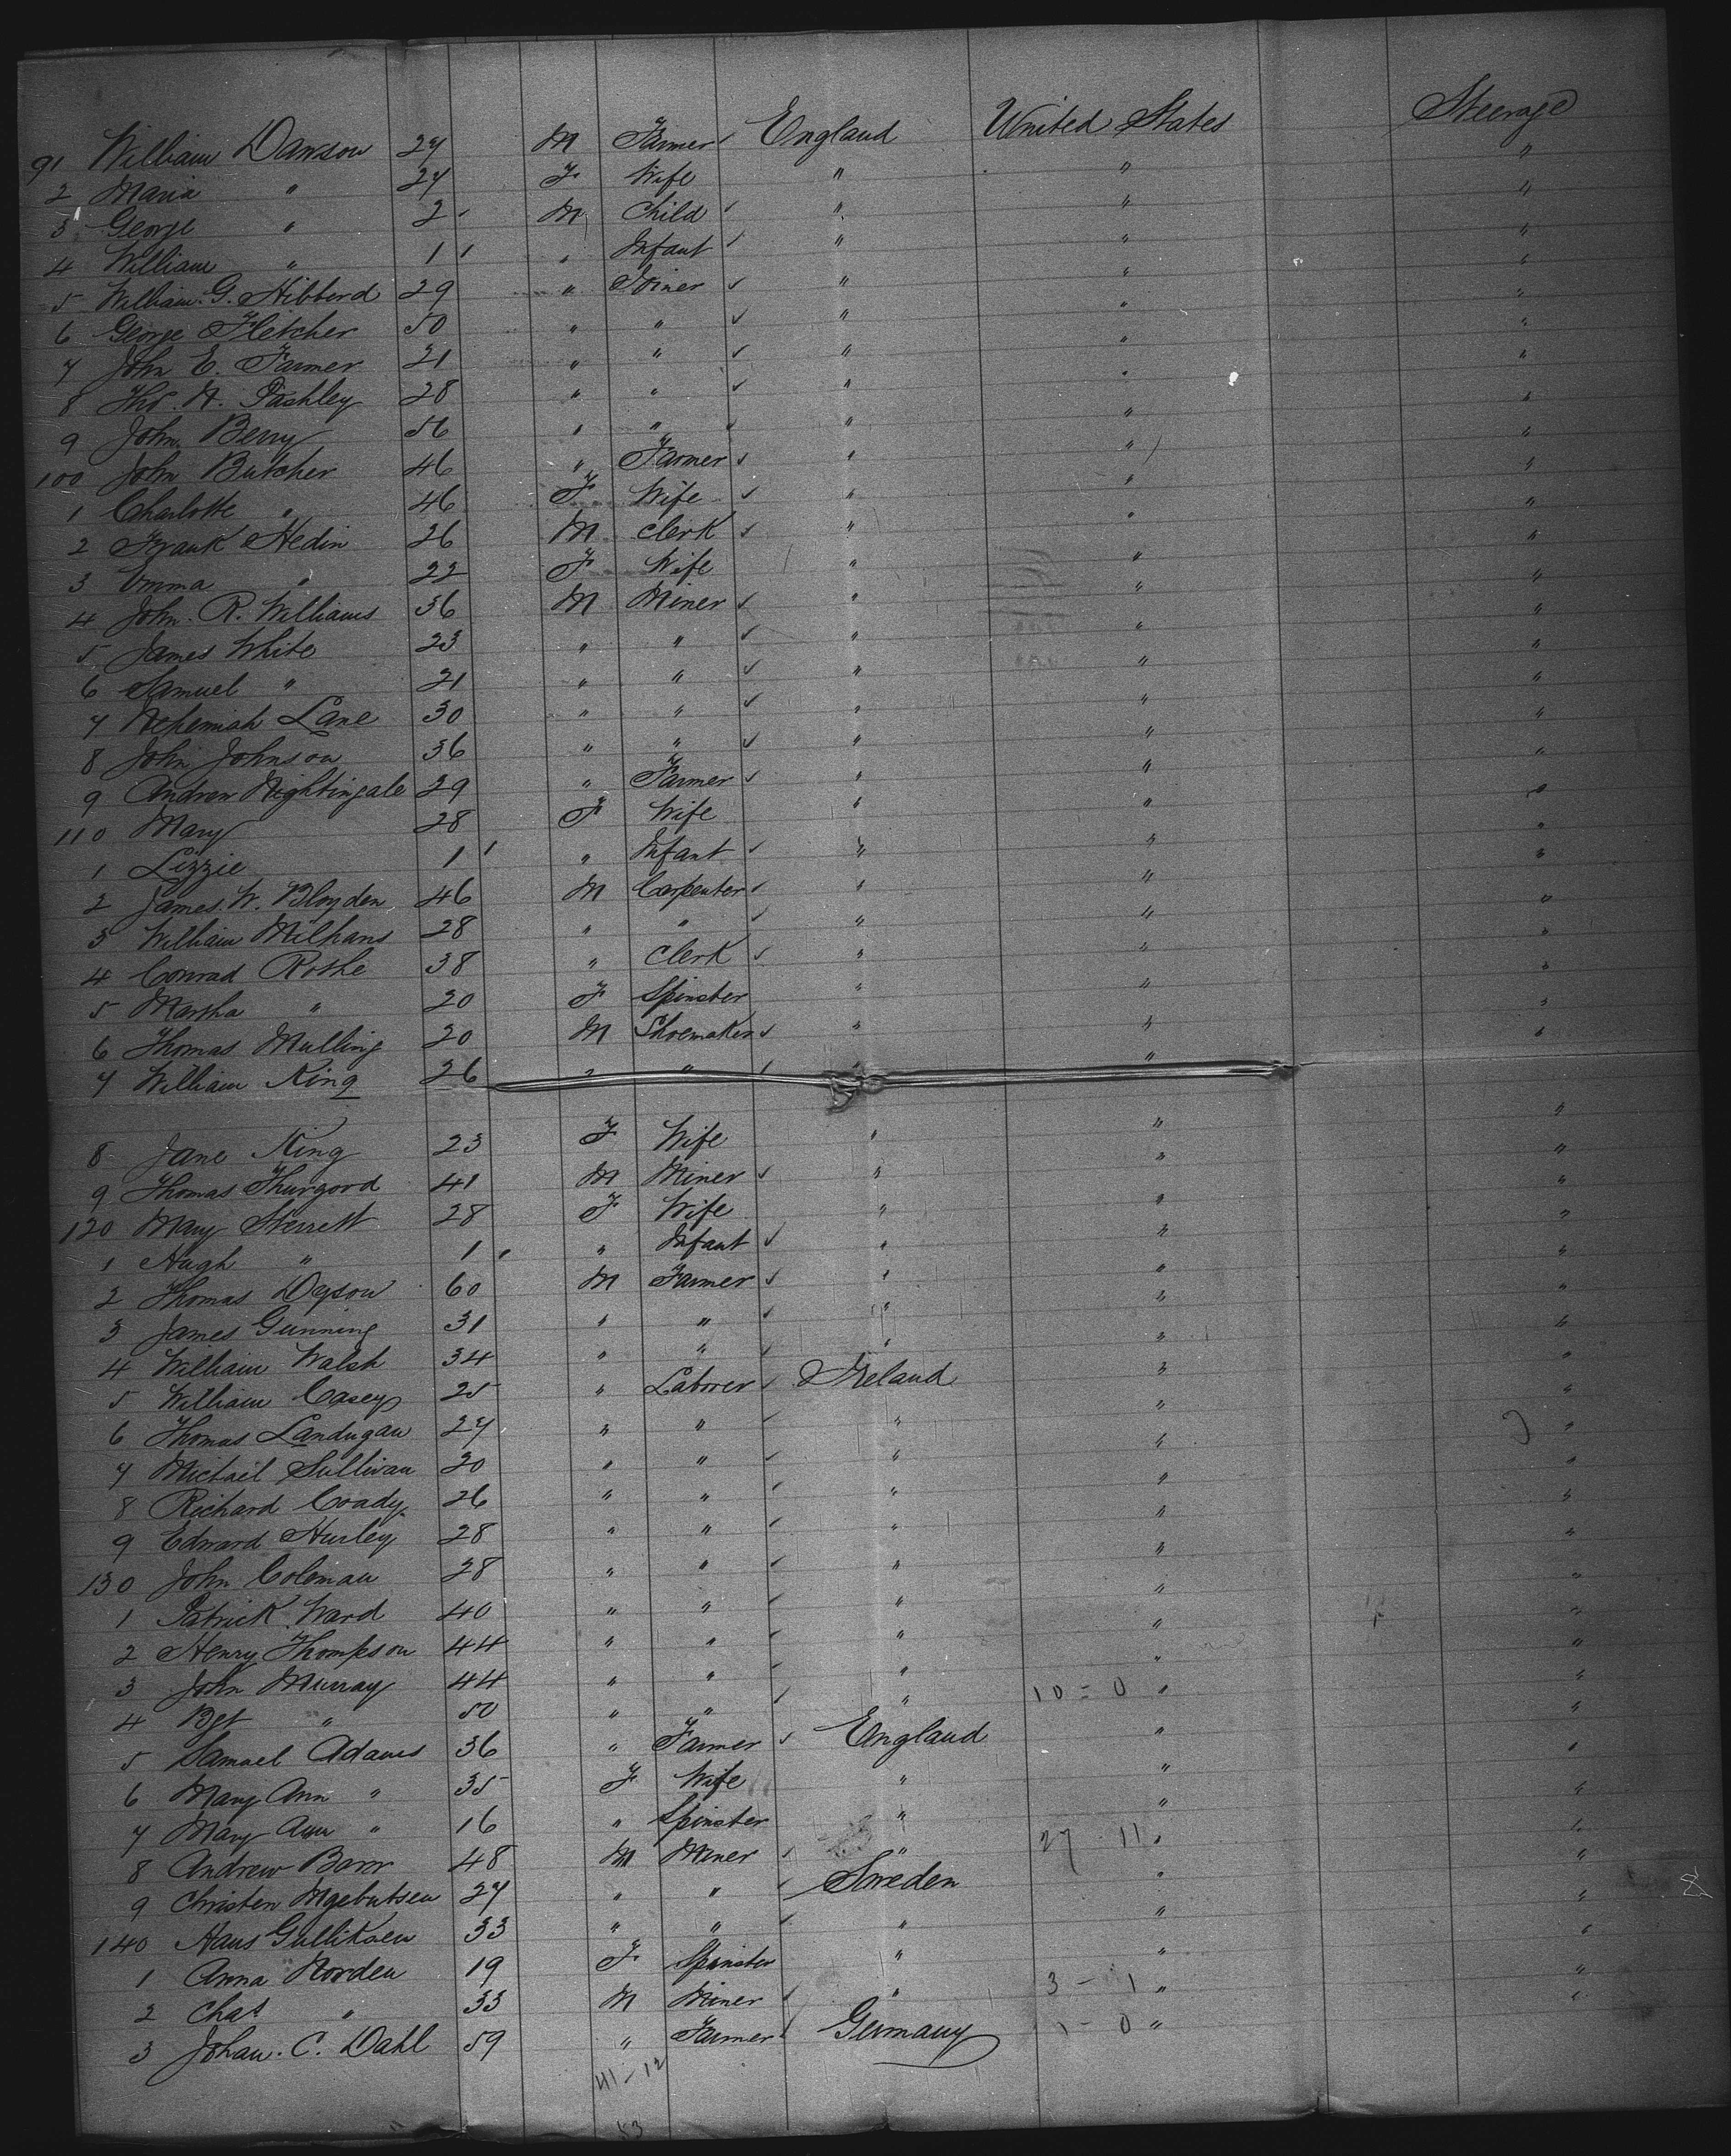 91 William Dawson 27 M Farmer ✓ England United States Steerage
2 Maria " 27 F Wife " " "
3 George " 2 M Child ✓ " " "
4 William " 1 " Infant ✓ " " "
5 William G. Hibberd 29 " Joiner ✓ " " "
6 George Fletcher 50 " " ✓ " " "
7 John E. Farmer 21 " " ✓ " " "
8 Thos. A. Pashley 28 " " ✓ " " "
9 John Berry 56 " " ✓ " " "
100 John Butcher 46 " Farmer ✓ " " "
1 Charlotte " 46 F Wife ✓ " " "
2 Frank Hedin 26 M Clerk ✓ " " "
3 Emma " 22 F Wife " " "
4 John R. Williams 36 M Miner ✓ " " "
5 James White 23 " " ✓ " " "
6 Samuel " 21 " " ✓ " " "
7 Nehemiah Lane 30 " " ✓ " " "
8 John Johnson 36 " " ✓ " " "
9 Andrew Nightingale 29 " Farmer ✓ " " "
110 Mary 28 F Wife " " "
1 Lizzie 1 " Infant ✓ " " "
2 James W. Bloyden 46 M Carpenter ✓ " " "
3 William Milhans 28 " " ✓ " " "
4 Conrad Rothe 38 " Clerk ✓ " " "
5 Martha " 20 F Spinster " " "
6 Thomas Mulling 20 M Shoemaker ✓ " " "
7 William King 26 " " ✓ "
8 Jane King 23 F Wife " " "
9 Thomas Thurgord 41 M Miner ✓ " " "
120 Mary Sterrett 28 F Wife " " "
1 Hugh " 1 " Infant ✓ " " "
2 Thomas Dyson 60 M Farmer ✓ " " "
3 James Gunning 31 " " ✓ " " "
4 William Walsh 34 " " ✓ " " "
5 William Casey 25 " Laborer ✓ Ireland " "
6 Thomas Landugan 27 " " ✓ " " "
7 Michael Sullivan 20 " " ✓ " " "
8 Richard Coady 26 " " ✓ " " "
9 Edward Hurley 28 " " ✓ " " "
130 John Coleman 28 " " ✓ " " "
1 Patrick Ward 40 " " ✓ " " "
2 Henry Thompson 44 " " ✓ " " "
3 John Murray 44 " " ✓ " " "
4 Bgt " 50 " " ✓ " 10 - 0 " "
5 Samuel Adams 36 " Farmer ✓ England " "
6 Mary Ann " 35 F Wife " " "
7 Mary Ann " 16 " Spinster " " "
8 Andrew Barr 48 M Miner ✓ " 27 - 11 " "
9 Christen 27 " " ✓ Sweden " "
140 Hans Gulliksen 33 " " ✓ " " "
1 Anna Norden 19 F Spinster " " "
2 Chas " 33 M Miner ✓ " 3 - 1 " "
3 Johan. C. Dahl 59 " Farmer ✓ Germany 1 - 0 "
41 - 12
53